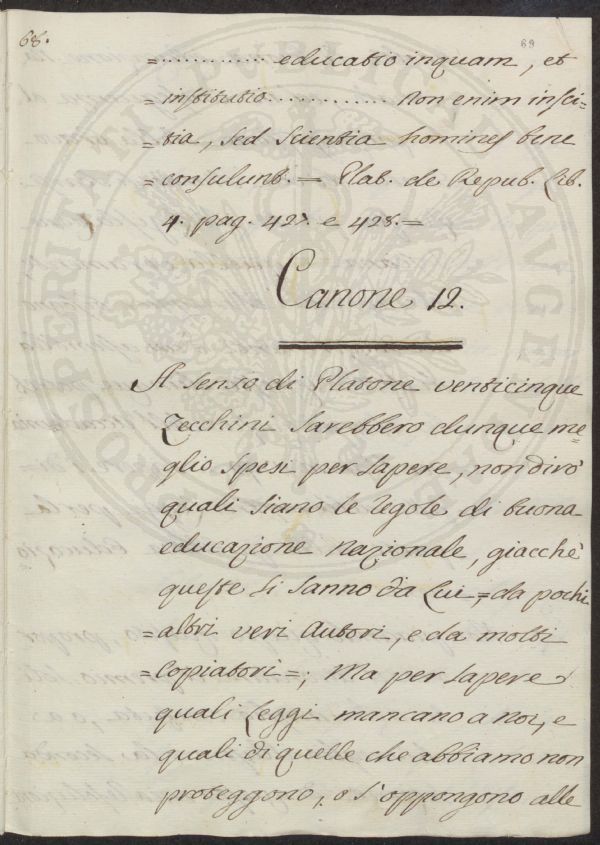 68.
69
=.......... educatio inquam, et
=institutio............ Non enim insci=
=tia, sed scientia homines bene
=consulunt.= Plat. de Repub. Lib.
4. pag. 427. e 428.=
Canone 12.
A senso di Platone venticinque
Zecchini sarebbero dunque me=
glio spesi per sapere, non dirò
quali siano le regole di buona
educazione Nazionale, giacchè
queste si sanno da Lui =, da pochi
=altri veri Autori, e da molti
=Copiatori=; Ma per sapere
quali Leggi mancano a noi, e
quali di quelle che abbiamo non
proteggono, o s'oppongono alle
PROSPERITATI PUBLICAE AUGE